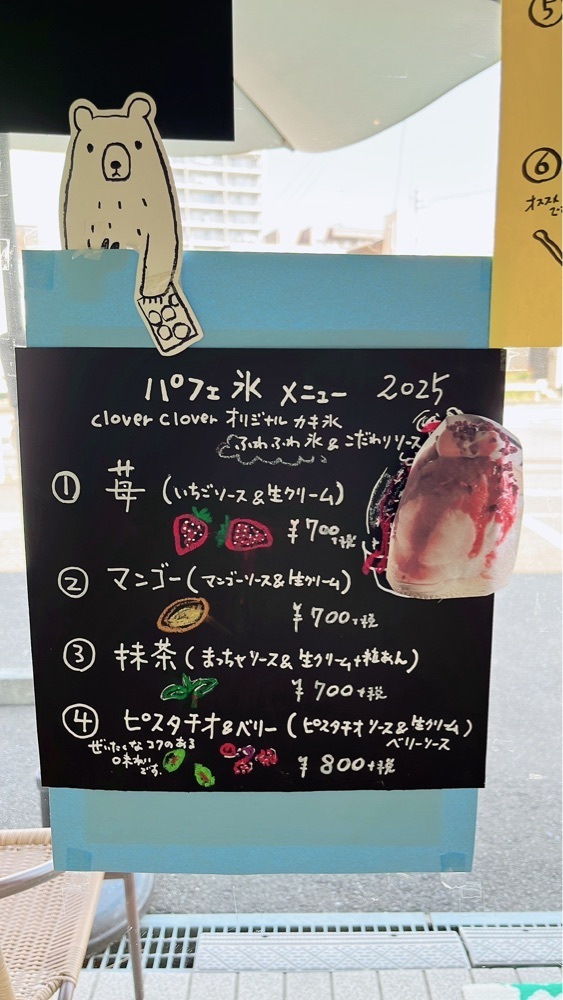 パフェ氷 メニュー 2025
clover clover オリジナル カキ氷
ふわふわ氷 & こだわりソース
① 苺 (いちごソース&生クリーム)
¥700+税
② マンゴー (マンゴーソース&生クリーム)
¥700+税
③ 抹茶 (まっちゃソース&生クリーム+粒あん)
¥700+税
④ ピスタチオ&ベリー (ピスタチオソース&生クリーム)
ベリーソース
ぜいたくなコクのある
味わい
です。
¥800+税
⑤
⑥
オススメ
で